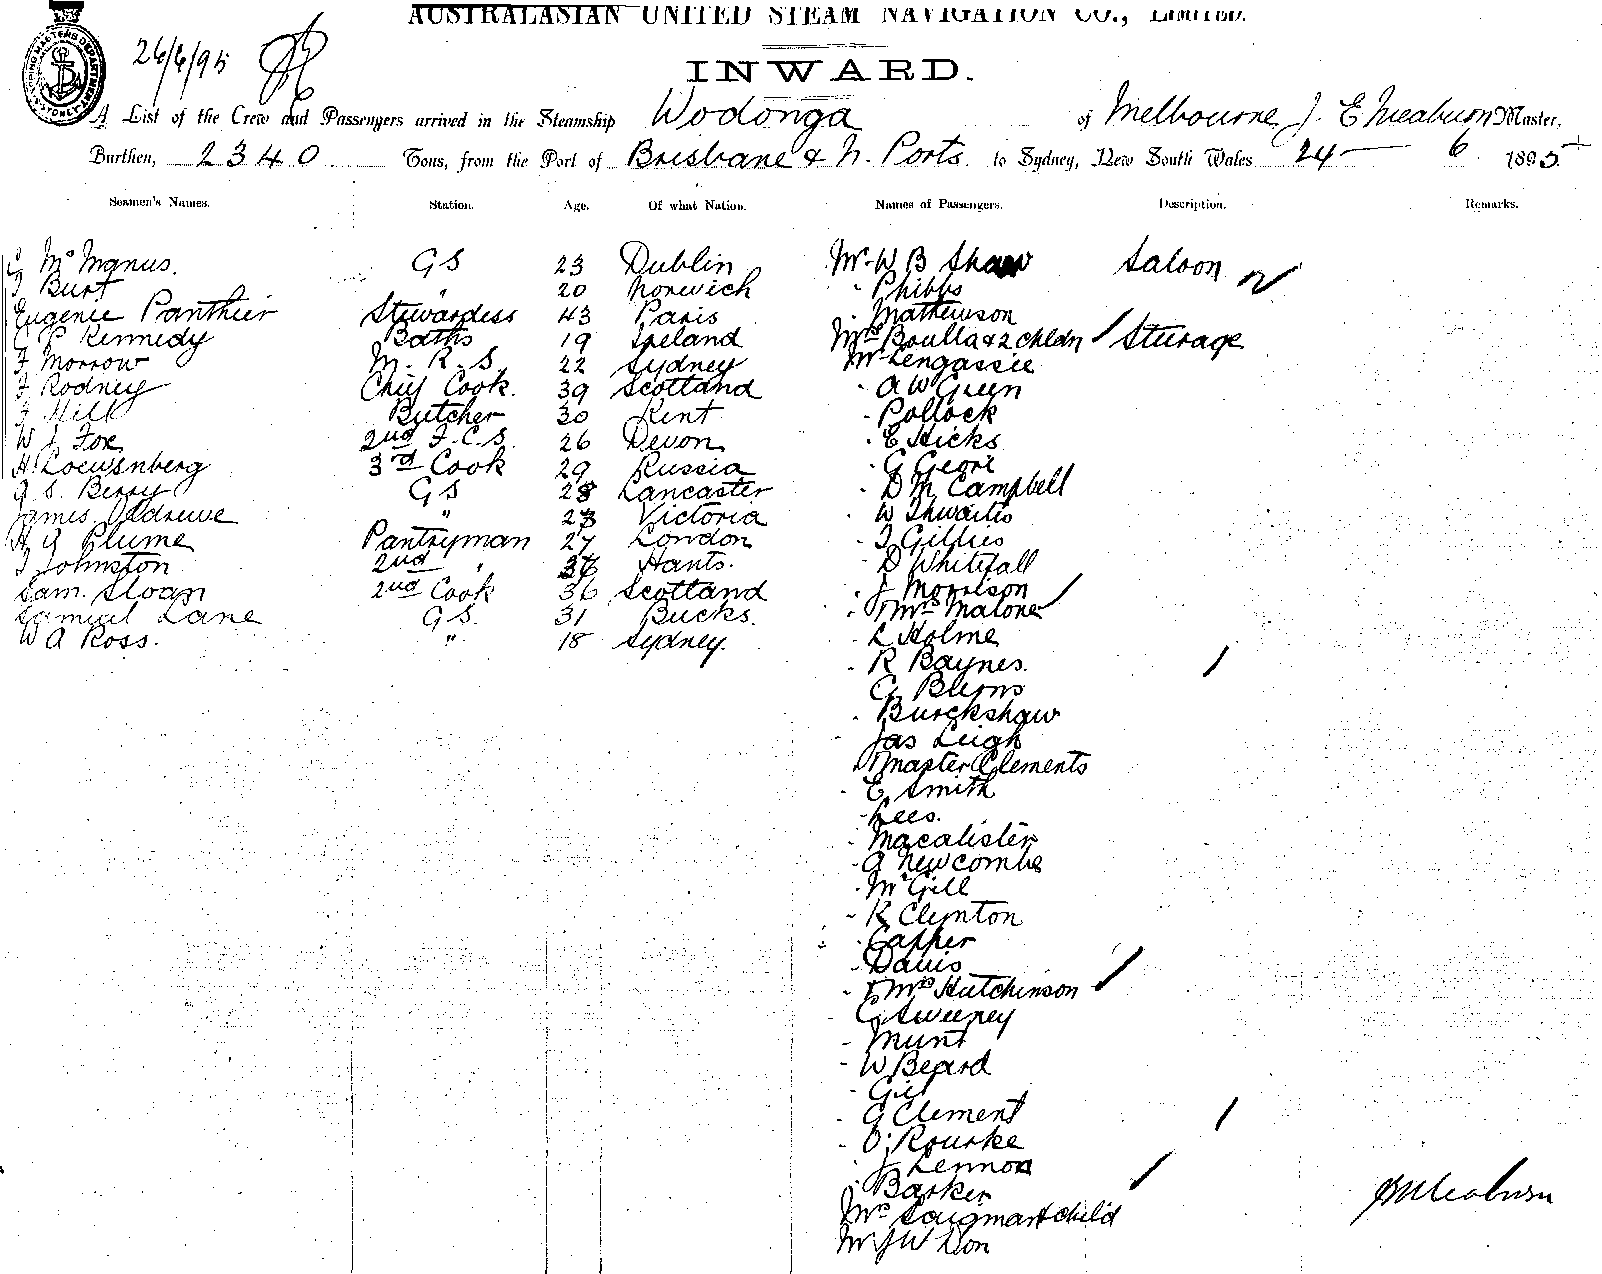 AUSTRALASIAN UNITED STEAM NAVIGATION CO., LIMITED.
26/6/95
INWARD.
A List of the Crew and Passengers arrived in the Steamship Wodonga of Melbourne J. E Meaburn Master,
Burthen, 2340 Tons, from the Port of Brisbane & N. Ports to Sydney, New South Wales 24 6 1895
Seamen's Names. Station. Age. Of what Nation. Names of Passengers. Description. Remarks.
McManus. GS 23 Dublin Mr W B Shaw Saloon
Burt " 20 Norwich " Phibbs
Eugenie Panthier Stewardess 43 Paris " Mathewson
P Kennedy Baths 19 Ireland Mrs Boulla & 2 chldn Sturage
F Morrow M. R. S. 22 Sydney Mr Lengassie
F Rodney Chief Cook. 39 Scotland " A W Green
Hill Butcher 30 Kent " Pollock
W J Fox 2nd F. C. S. 26 Devon " E Hicks
H. Loewenberg 3rd Cook 29 Russia " G Geori
S. Berry GS 28 Lancaster " D M Campbell
James " 23 Victoria " W Thwaites
H G Plume Pantryman 27 London " J Gillies
J Johnston 2nd " Hants. " D Whitefall
Sam. Sloan 2nd Cook 36 Scotland " J Morrison
Samuel Lane GS. 31 Bucks. " & Mrs Malone
W A Ross. " 18 Sydney. L Holme
" R Baynes.
G Burns
" Burckshaw
" Jas Leigh
" & Master Clements
" E, Smith
" Lees.
" Macalister
" A Newcombe
" McGill
" R Clynton
" Capper
" Davis
" & Mrs Hutchinson
" G Sweeney
" Munt
" W Beard
" Gill
" G Clement
" O'Rourke
" J Lennon
" Barker
Mrs & child
Mr J W Lion
J E Meaburn